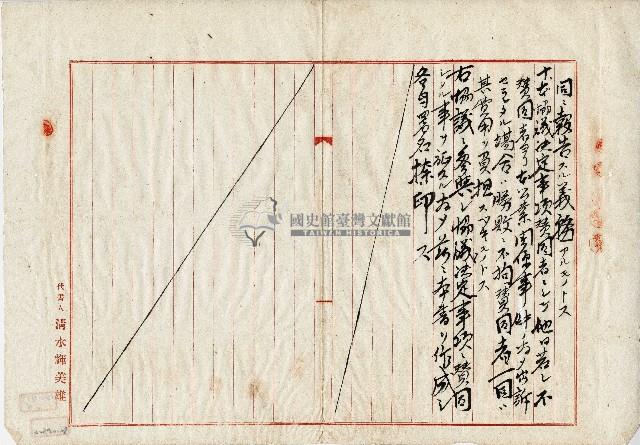 同ニ報告スル義務アルモノトス
十、本協議決定事項賛同者ニシテ他日若シ不
賛同者ヨリ本公業関係事件ノ為メ出訴
セラレタル場合ハ勝敗ニ不拘賛同者一同ニ
其費用ヲ負担スベキモノトス
右協議ニ参与シ協議決定事項ニ賛同
シタル事ヲ証スル為メ茲ニ本書ヲ作成シ
各自署名捺印ス
代書人 清水輝美雄
國史館臺灣文獻館
TAIWAN HISTORICA